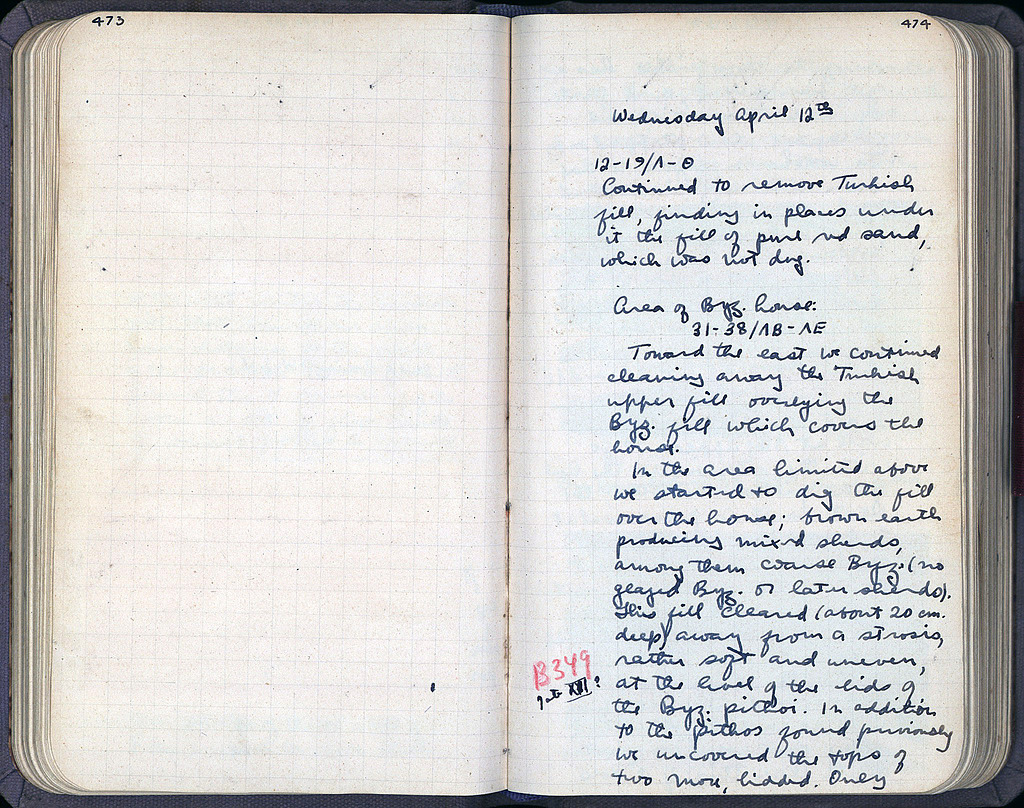 473
474
Wednesday April 12th
12-19/Λ-Θ
Continued to remove Turkish
fill, finding in places under
it the fill of pure red sand,
which was not dug.
Area of Byz. house:
31-38/ΛB-ΛE
Toward the east we continued
cleaning away the Turkish
upper fill overlying the
Byz. fill which covers the
house.
In the area limited above
we started to dig the fill
over the house; brown earth
producing mixed sherds,
among them coarse Byz. (no
glazed Byz. or later sherds).
This fill cleared (about 20 cm.
deep) away from a strosis,
rather soft and uneven,
B349
at the level of the lids of
XIII?
the Byz. pithoi. In addition
to the pithos found previously
we uncovered the tops of
two more, lidded. Only